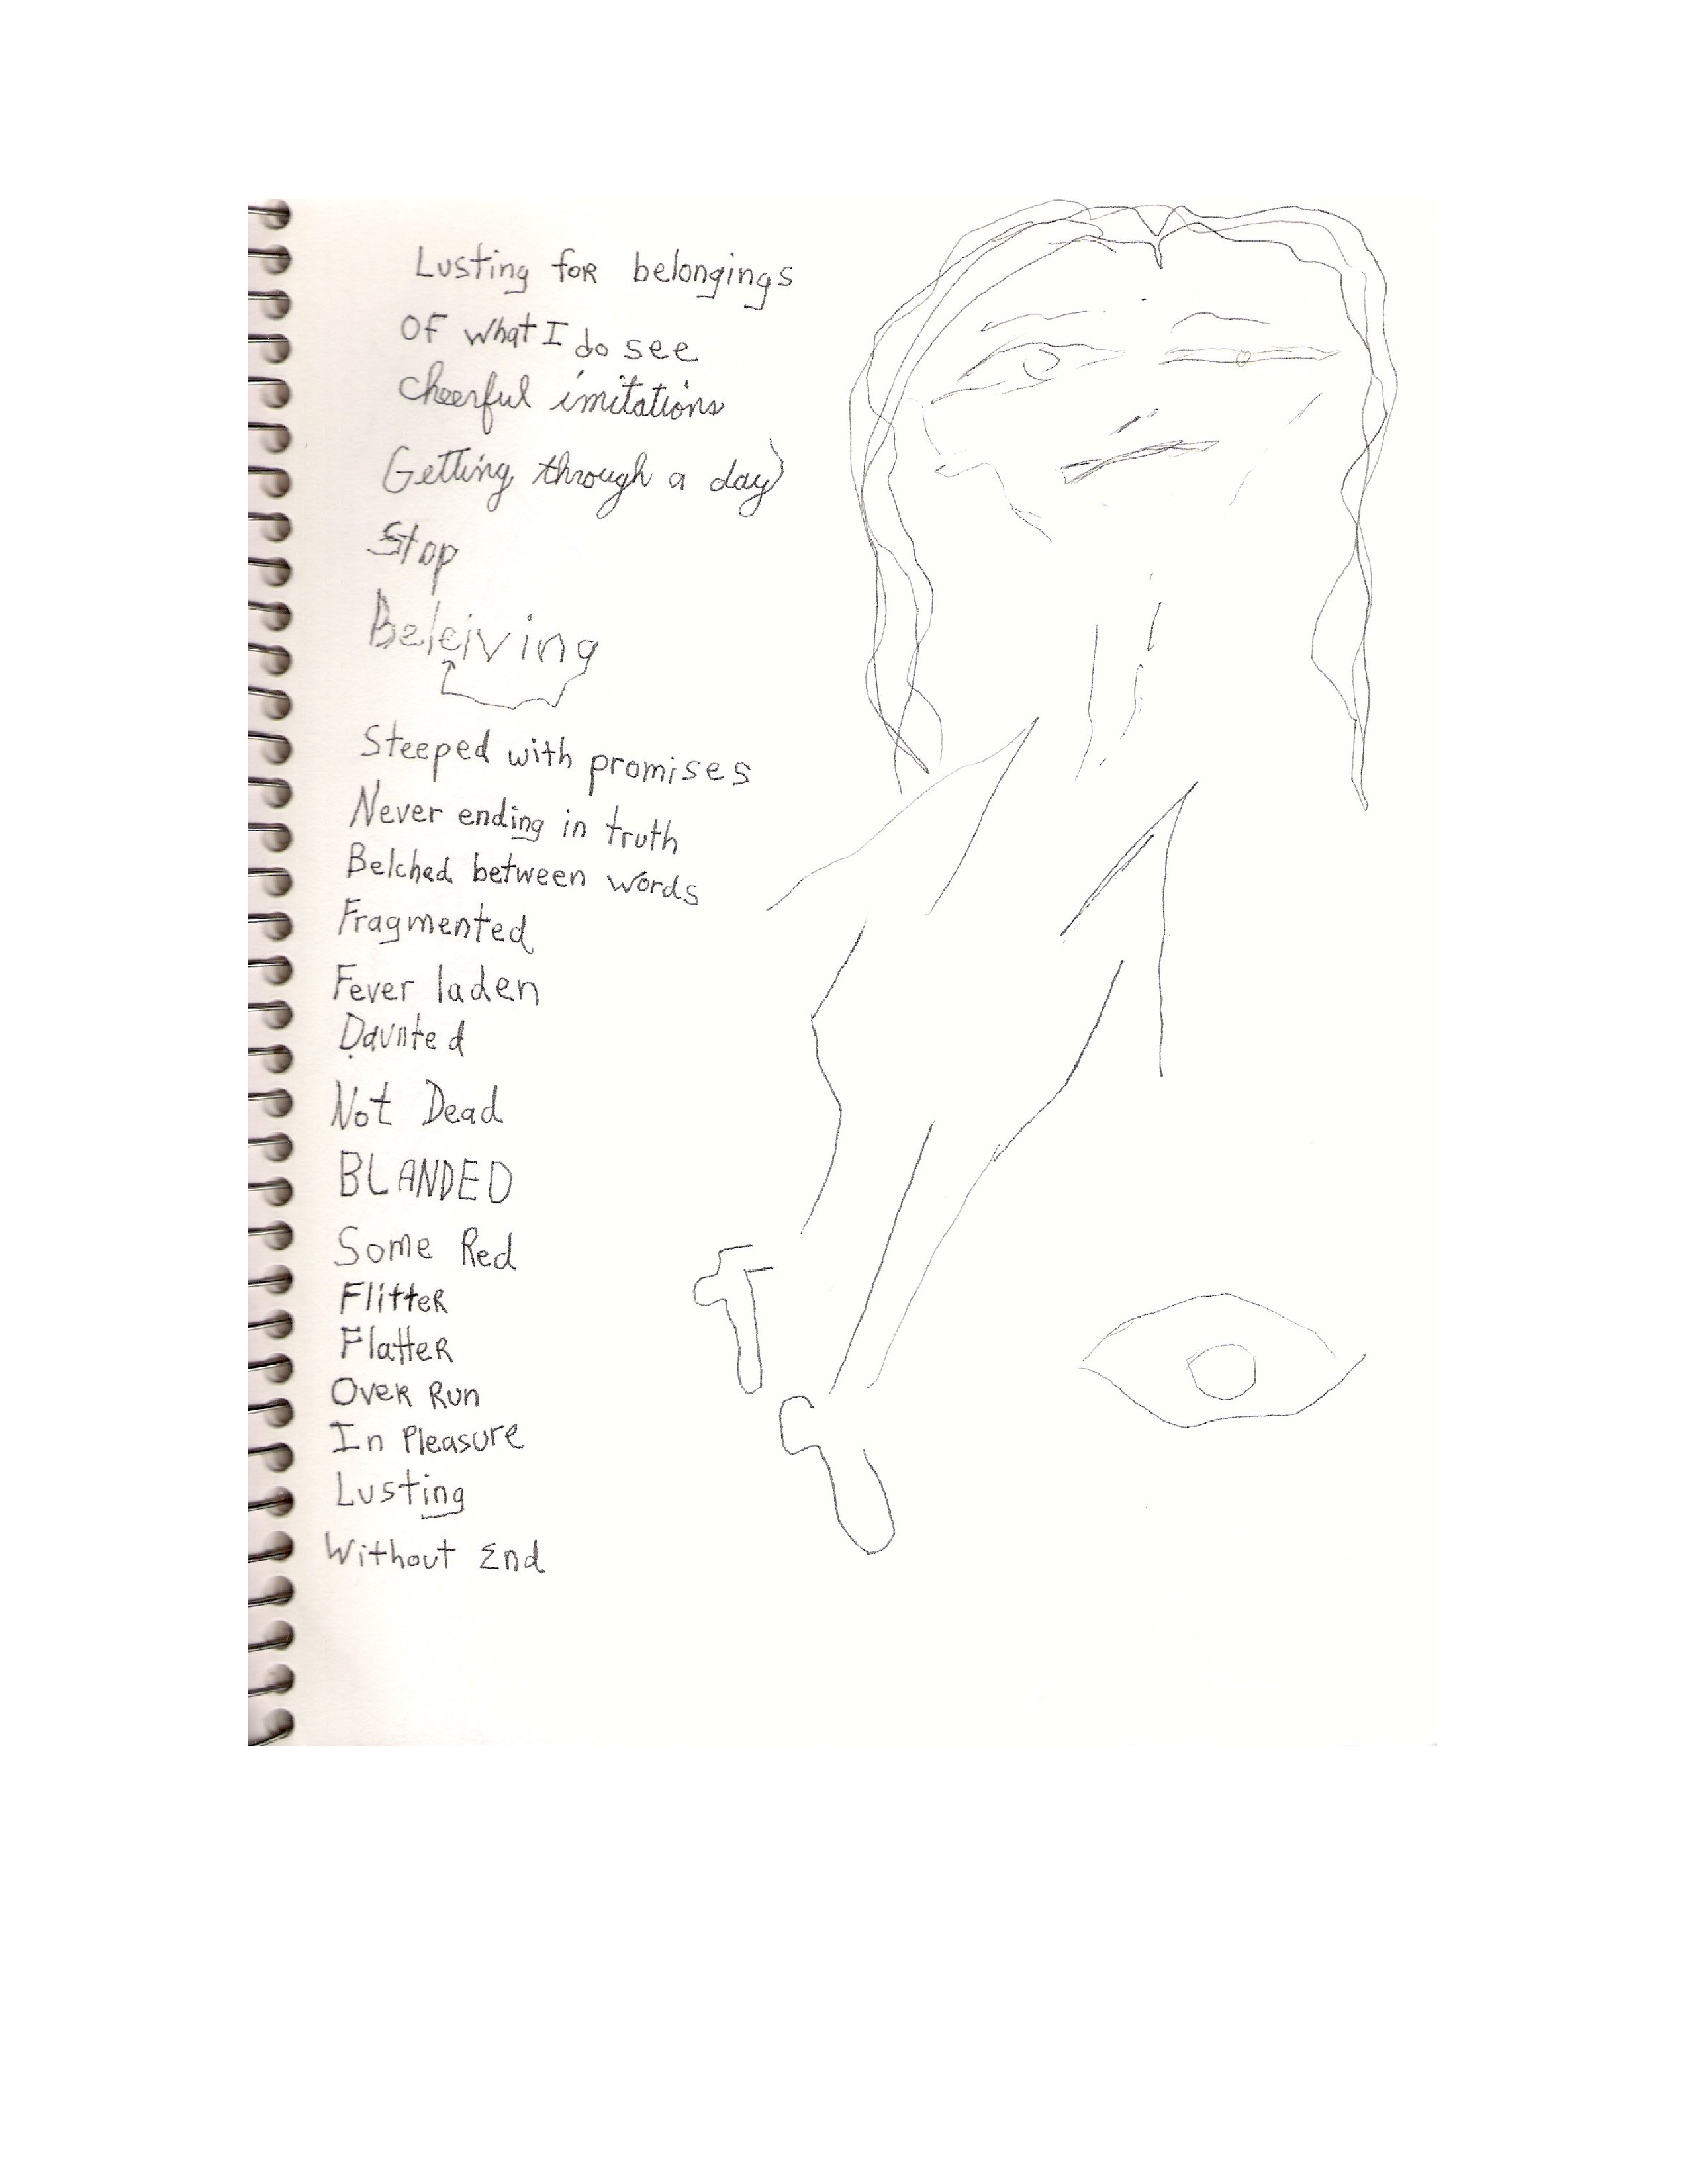 Lusting for belongings
Of what I do see
cheerful imitations
Getting through a day
Stop
Beleiving
Steeped with promises
Never ending in truth
Belched between words
Fragmented
Fever laden
Daunted
Not Dead
BLANDED
Some Red
FlitteR
FlatteR
OveR Run
In Pleasure
Lusting
Without End